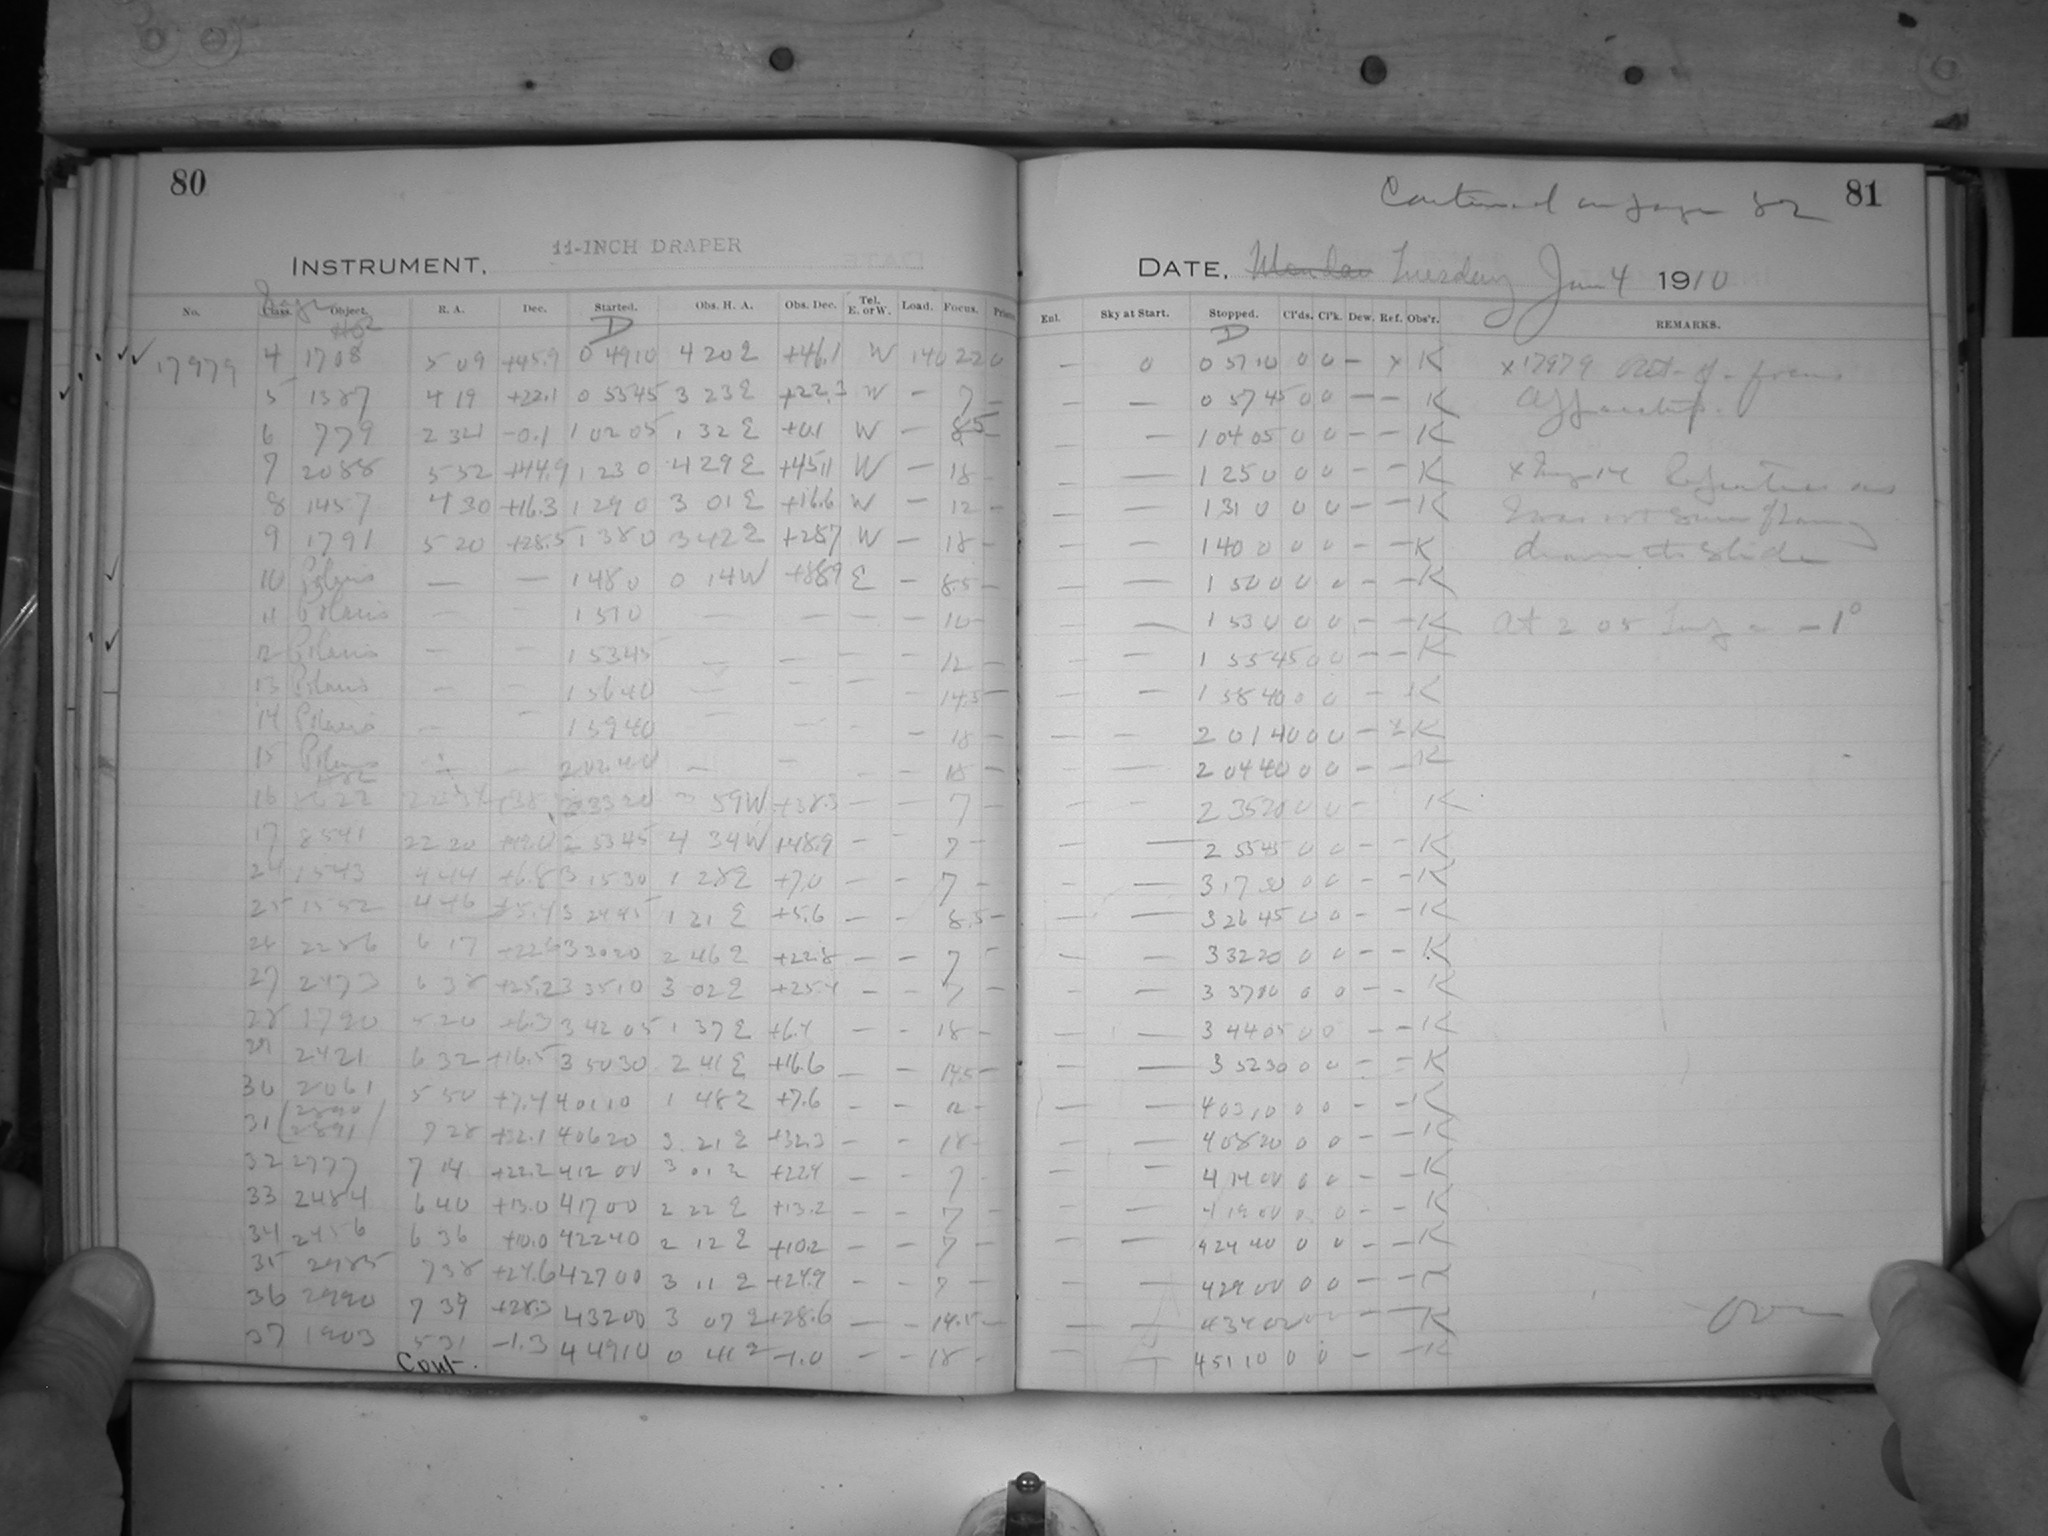 80
11-INCH DRAPER
INSTRUMENT.
No. Class. Object. R. A. Dec. Started. Obs. H. A. Obs. Dec. Tel. E. or W. Load. Focus.
D
17979 4 1708 5 09 +45.9 0 49 10 4 20 E +46.1 W 140 22 0
5 1387 4 19 +22.1 0 55 45 3 23 E +22.3 W — 7 —
6 779 2 34 -0.1 1 02 05 1 32 E +0.1 W — 8.5 —
7 2088 5 52 +44.9 1 23 0 4 29 E +45.1 W — 18 -
8 1457 4 30 +16.3 1 29 0 3 01 E +16.6 W — 12 -
9 1791 5 20 +28.5 1 38 0 3 42 E +28.7 W — 18 -
10 Polaris — — 1 48 0 0 14 W +88.9 E — 8.5 —
11 Polaris — — 1 51 0 — — 10 -
12 Polaris — — 1 53 45 — — — — 12 —
13 Polaris — — 1 56 40 — — — — 14.5 —
14 Polaris — — 1 59 40 — — — — 18 —
15 Polaris — — 2 02 40 — — — — 18 —
16 2 33 20 59 W +38.3 — — 7 —
17 8541 22 20 2 53 45 4 34 W +48.9 — — 7 —
24 1543 4 44 +6.8 3 15 30 1 28 E +7.0 — — 7 -
25 1552 4 46 +5.4 3 24 45 1 21 E +5.6 — — 8.5 —
26 2286 6 17 +22.6 3 30 20 2 46 E +22.8 — — 7 -
27 2473 6 38 +25.2 3 35 10 3 02 E +25.4 — — 7 -
28 1790 5 20 +6.3 3 42 05 1 37 E +6.4 — — 18 -
29 2421 6 32 +16.5 3 50 30 2 41 E +16.6 — — 14.5 —
30 2061 5 50 +7.4 4 01 10 1 48 E +7.6 — — 12 -
31 (2890 2891) 7 28 4 06 20 3 21 E +32.3 — — 18 -
32 2777 7 14 +22.2 4 12 00 3 01 E +22.4 — — 7 -
33 2484 6 40 +13.0 4 17 00 2 22 E +13.2 — — 7 -
34 2456 6 36 +10.0 4 22 40 2 12 E +10.2 — — 7 -
35 2985 7 38 +24.6 4 27 00 3 11 E +24.9 — — 7 -
36 2990 7 39 +28.3 4 32 00 3 07 E +28.6 — — 14.5 —
37 1903 5 31 -1.3 4 49 10 0 41 E -1.0 — — 18 -
Cont.
Continued on page 82 81
DATE, Monday Tuesday Jan 4 1910
Enl. Sky at Start. Stopped. Cl'ds. Cl'k. Dew. Ref. Obs'r. REMARKS.
D
— 0 0 57 10 0 0 — x K x 17979 Out of focus
— — 0 57 45 0 0 — — K
— 1 04 05 0 0 — — K
— — 1 25 0 0 0 — — K
— — 1 31 0 0 0 — — K
— — 1 40 0 0 0 — — K slide
— — 1 50 0 0 0 — — K
— — 1 53 0 0 0 — — K At 2 05 — 1°
— — 1 55 45 0 0 — — K
— — 1 58 40 0 0 — — K
— — 2 01 40 0 0 — x K
— — 2 04 40 0 0 — — K
— — 2 35 20 0 0 — K
— — 2 55 45 0 0 — — K
— — 3 17 30 0 0 — — K
— — 3 26 45 0 0 — — K
— — 3 32 20 0 0 — — K
— — 3 37 10 0 0 — — K
— — 3 44 05 0 0 — — K
— — 3 52 30 0 0 — — K
— — 4 03 10 0 0 — — K
— — 4 08 20 0 0 — — K
— — 4 14 00 0 0 — — K
— — 4 19 00 0 0 — — K
— — 4 24 40 0 0 — — K
— — 4 29 00 0 0 — — K
— — 4 34 00 — — K Over
— — 4 51 10 0 0 — — K